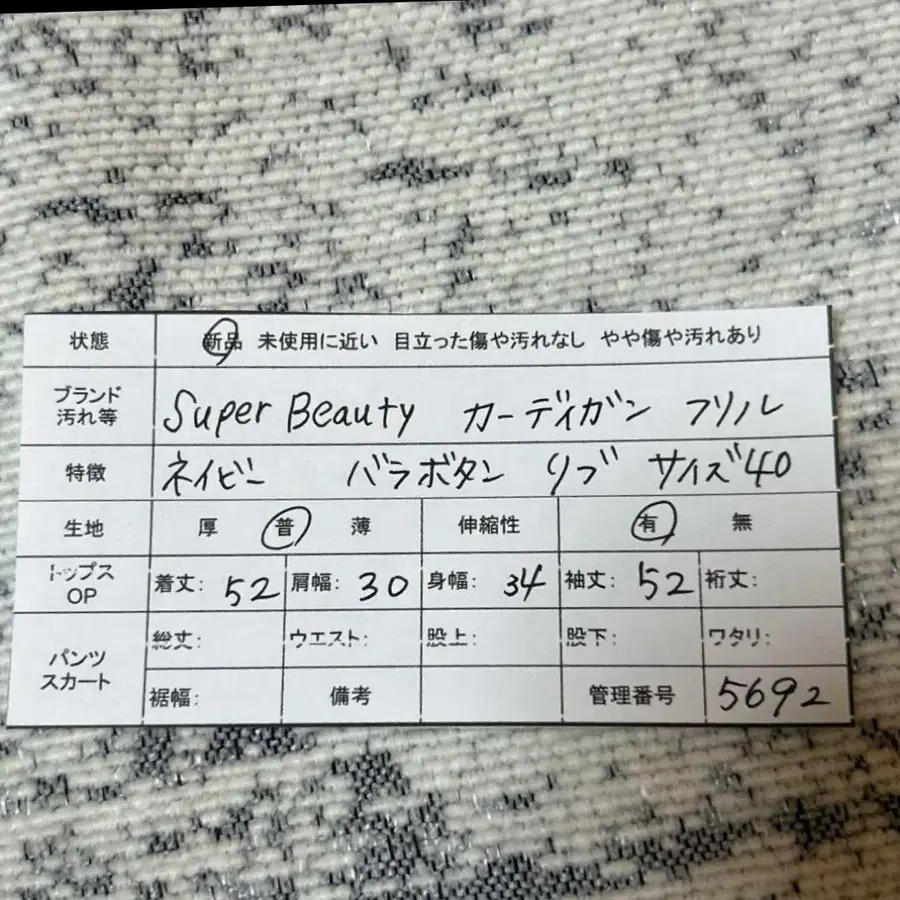 状態 新品 未使用に近い 目立った傷や汚れなし やや傷や汚れあり
ブランド 汚れ等 Super Beauty カーディガン フリル
特徴 ネイビー バラボタン リブ サイズ40
生地 厚 普 薄 伸縮性 有 無
トップス OP 着丈: 52 肩幅: 30 身幅: 34 袖丈: 52 裄丈:
パンツ スカート 総丈: ウエスト: 股上: 股下: ワタリ:
裾幅: 備考 管理番号 5692